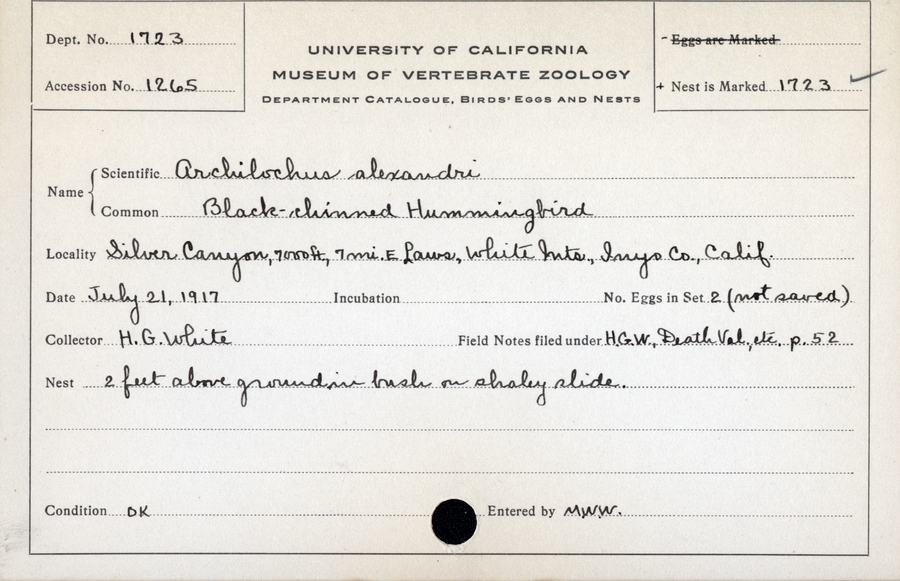 Dept. No. 1723
Accession No. 1265
UNIVERSITY OF CALIFORNIA
MUSEUM OF VERTEBRATE ZOOLOGY
DEPARTMENT CATALOGUE, BIRDS' EGGS AND NESTS
- Eggs are Marked
+ Nest is Marked 1723
Name
Scientific Archilochus alexandri
Common Black-chinned Hummingbird
Locality Silver Canyon, 7000ft, 7mi. E Laws, White Mts., Inyo Co., Calif.
Date July 21, 1917 Incubation No. Eggs in Set 2 (not saved)
Collector H. G. White Field Notes filed under H.G.W., Death Val., etc. p. 52
Nest 2 feet above ground in bush on shaley slide.
Condition OK Entered by M.W.W.